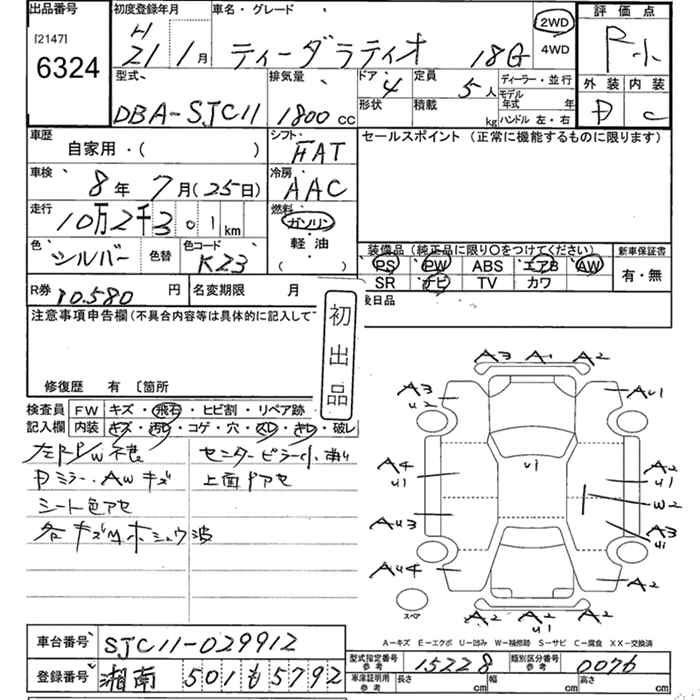 出品番号
[2147]
6324
初度登録年月
H21 1月
車名・グレード
ティーダラティオ 18G
2WD
4WD
評価点
F 小
外装 内装
D C
型式
DBA-SJC11
排気量
1800 CC
ドア 4
形状
定員 5人
積載 kg
ディーラー・並行
モデル年式 年
ハンドル 左・右
車歴
自家用・( )
シフト
FAT
セールスポイント (正常に機能するものに限ります)
車検
8年 7月(25日)
冷房
AAC
走行
10万2千301km
燃料
ガソリン
軽油
( )
色
シルバー
色替
色コード
K23
装備品(純正品に限り○をつけてください)
PS PW ABS エアB AW
SR ナビ TV カワ
新車保証書
有・無
R券 10,580円
名変期限 月
後日品
注意事項申告欄(不具合内容等は具体的に記入して
初出品
修復歴 有 〔箇所
検査員
記入欄
FW キズ・飛石・ヒビ割・リペア跡
内装 キズ・汚れ・コゲ・穴・スレ・きレ・破レ
Dミラー・AWキズ
シート色アセ
上面ドアセ
A3 A1 A2
A3 U2
AU1
U1
A4 U1
A2 U1
W2
AU3
A3 U1
AU4
A2
A2 A2 U1 A2
スペア
A-キズ E-エクボ U-凹み W-補修跡 S-サビ C-腐食 XX-交換済
車台番号 SJC11-029912
登録番号 湘南 501 も 5792
型式指定番号 参考 15228
類別区分番号 参考 0076
車庫証明用 参考 長さ cm 幅 cm 高さ cm